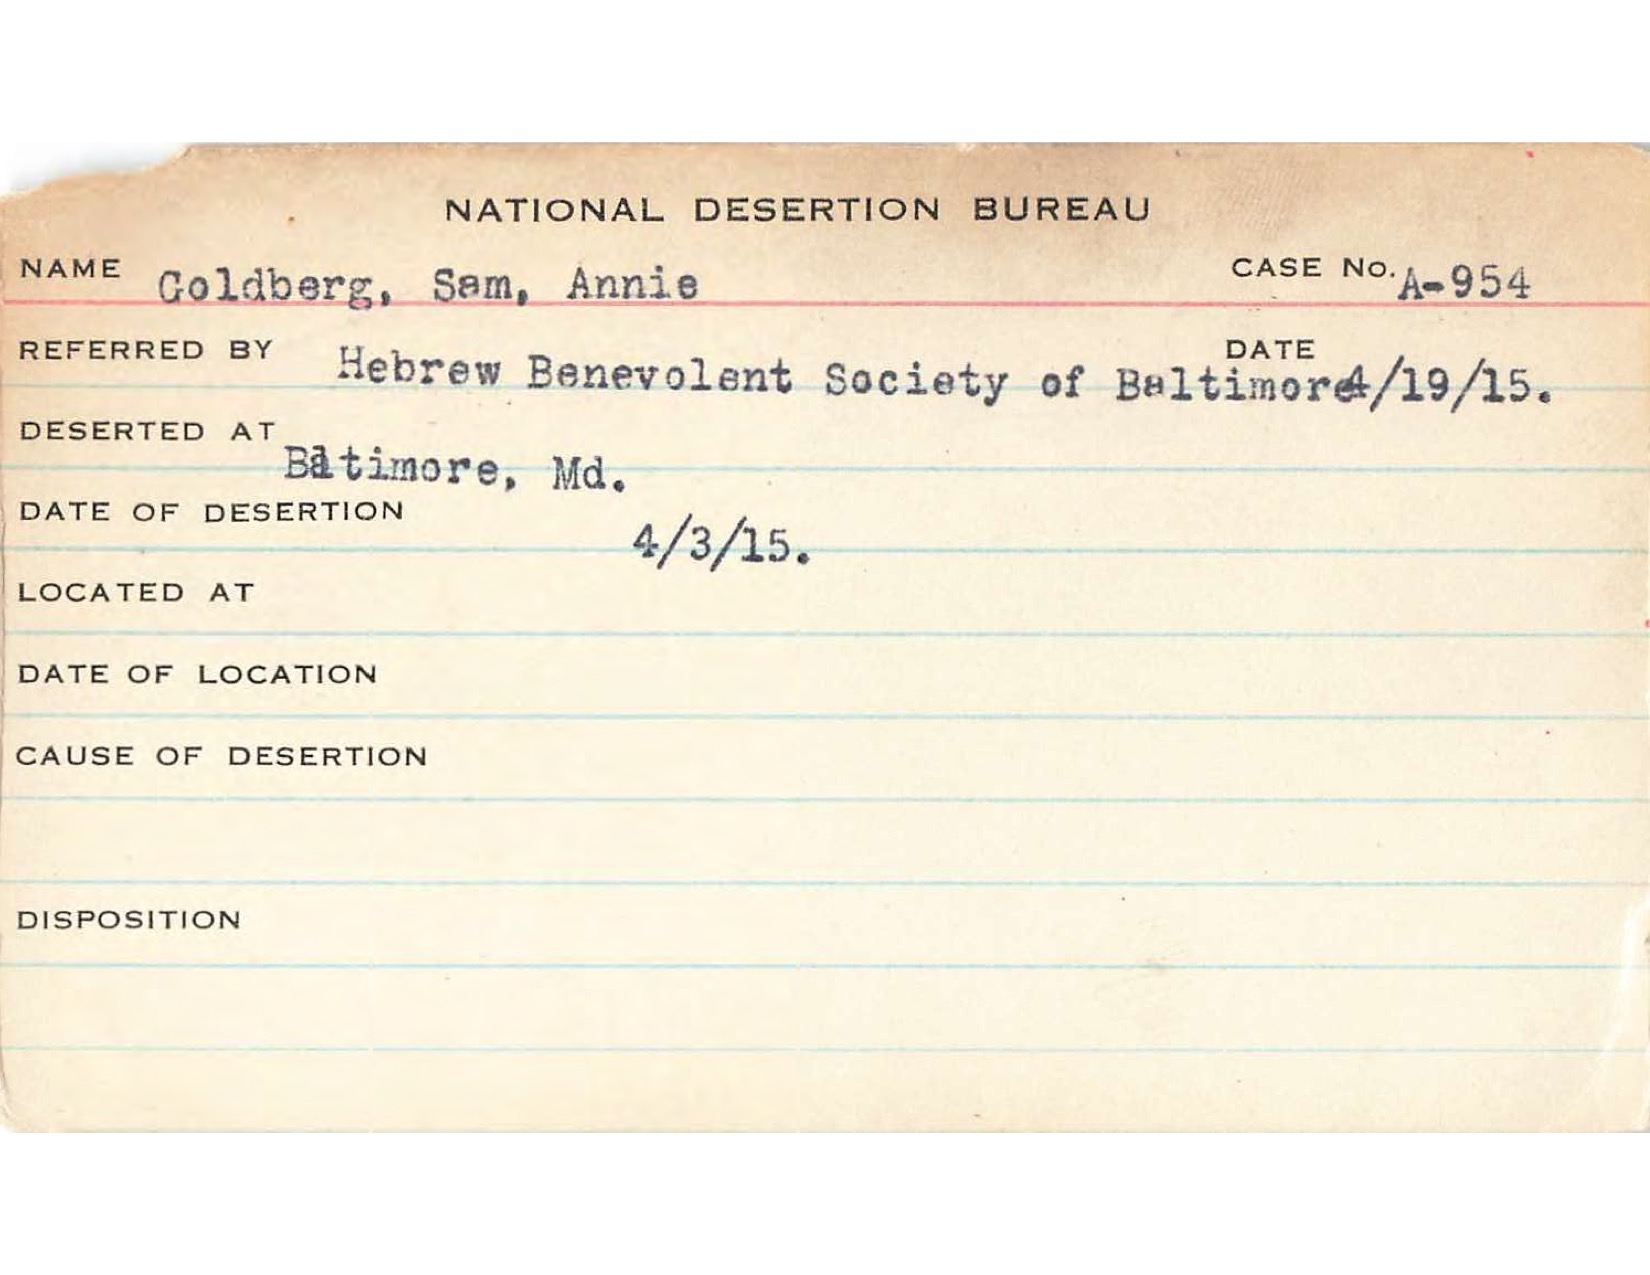 NATIONAL DESERTION BUREAU
NAME Goldberg, Sam, Annie CASE No. A-954
REFERRED BY Hebrew Benevolent Society of Baltimore DATE 4/19/15.
DESERTED AT Baltimore, Md.
DATE OF DESERTION 4/3/15.
LOCATED AT
DATE OF LOCATION
CAUSE OF DESERTION
DISPOSITION